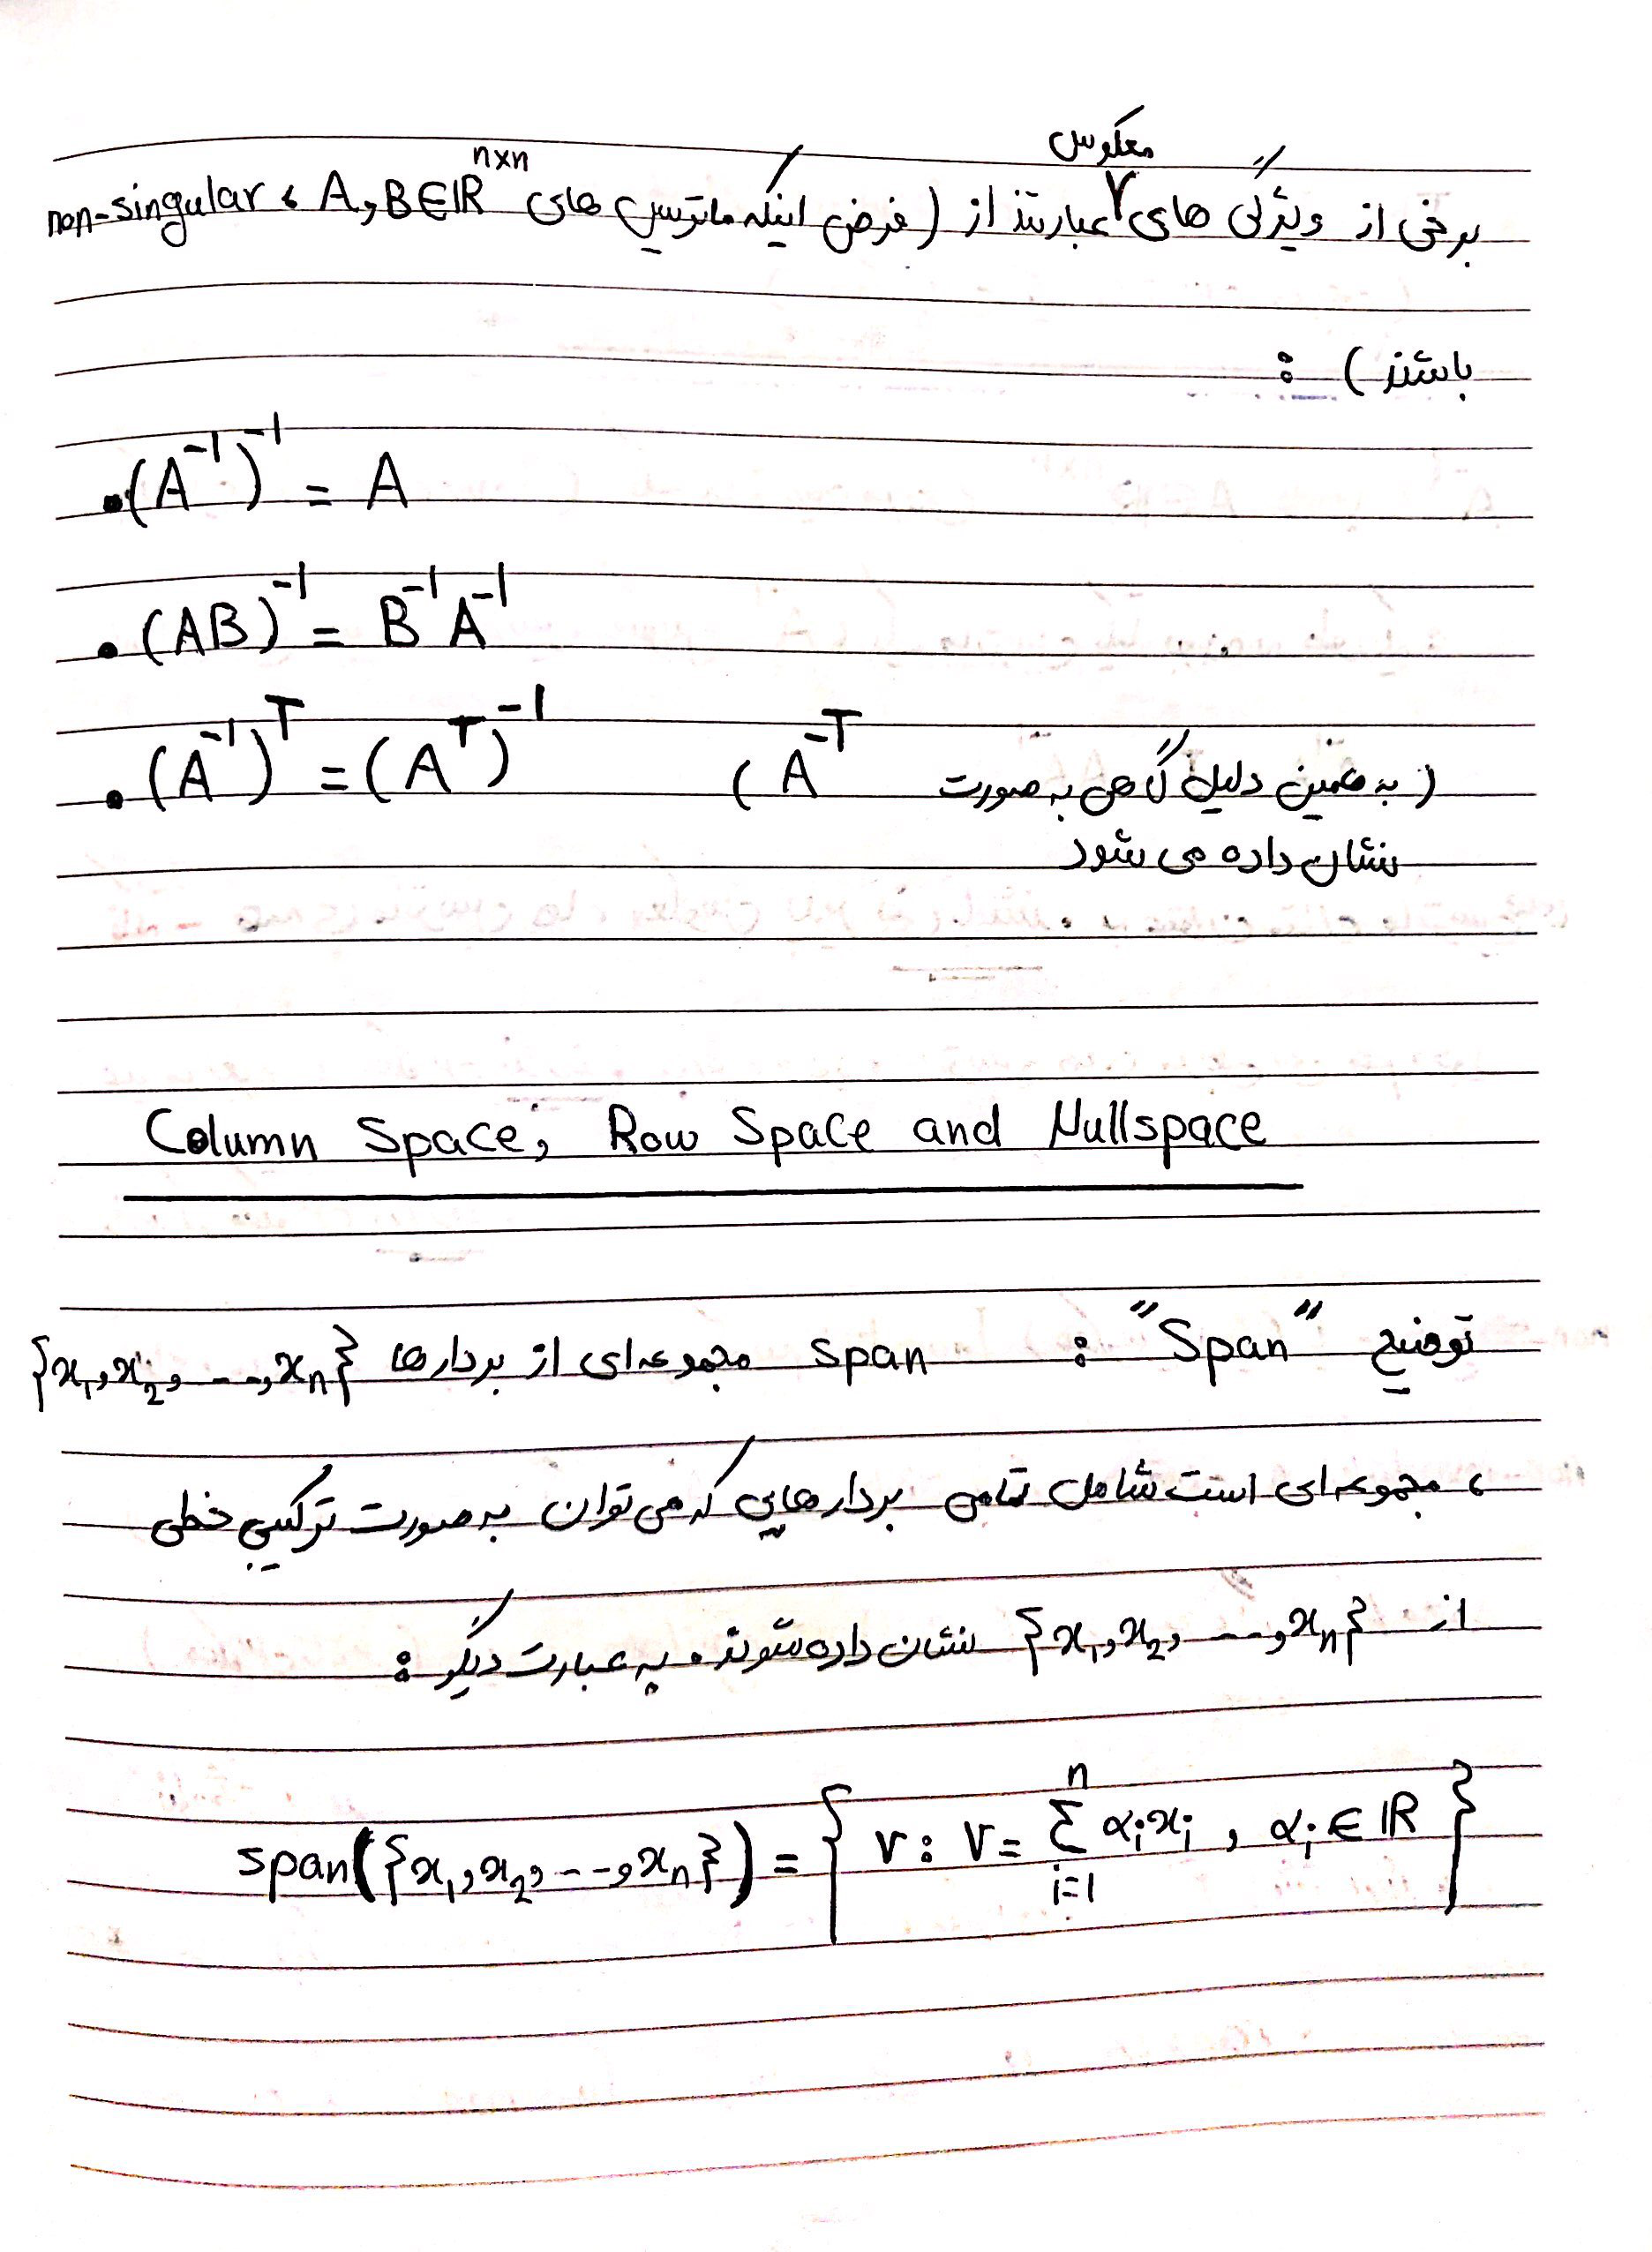 برخی از ویژگی های معکوس عبارتند از (فرض اینکه ماتریس های A,B∈ℝⁿˣⁿ ، non-singular
باشند) :
• (A⁻¹)⁻¹ = A
• (AB)⁻¹ = B⁻¹A⁻¹
• (A⁻¹)ᵀ = (Aᵀ)⁻¹ (به همین دلیل گاهی به صورت A⁻ᵀ)
نشان داده می شود
Column Space, Row Space and Nullspace
توضیح "Span" : span مجموعه ای از بردارها {x₁,x₂,...,xₙ}
، مجموعه ای است شامل تمامی بردارهایی که می توان به صورت ترکیبی خطی
از {x₁,x₂,...,xₙ} نشان داده شوند. به عبارت دیگر :
span({x₁,x₂,...,xₙ}) = { v : v = ∑ᵢ₌₁ⁿ αᵢxᵢ , αᵢ ∈ ℝ }